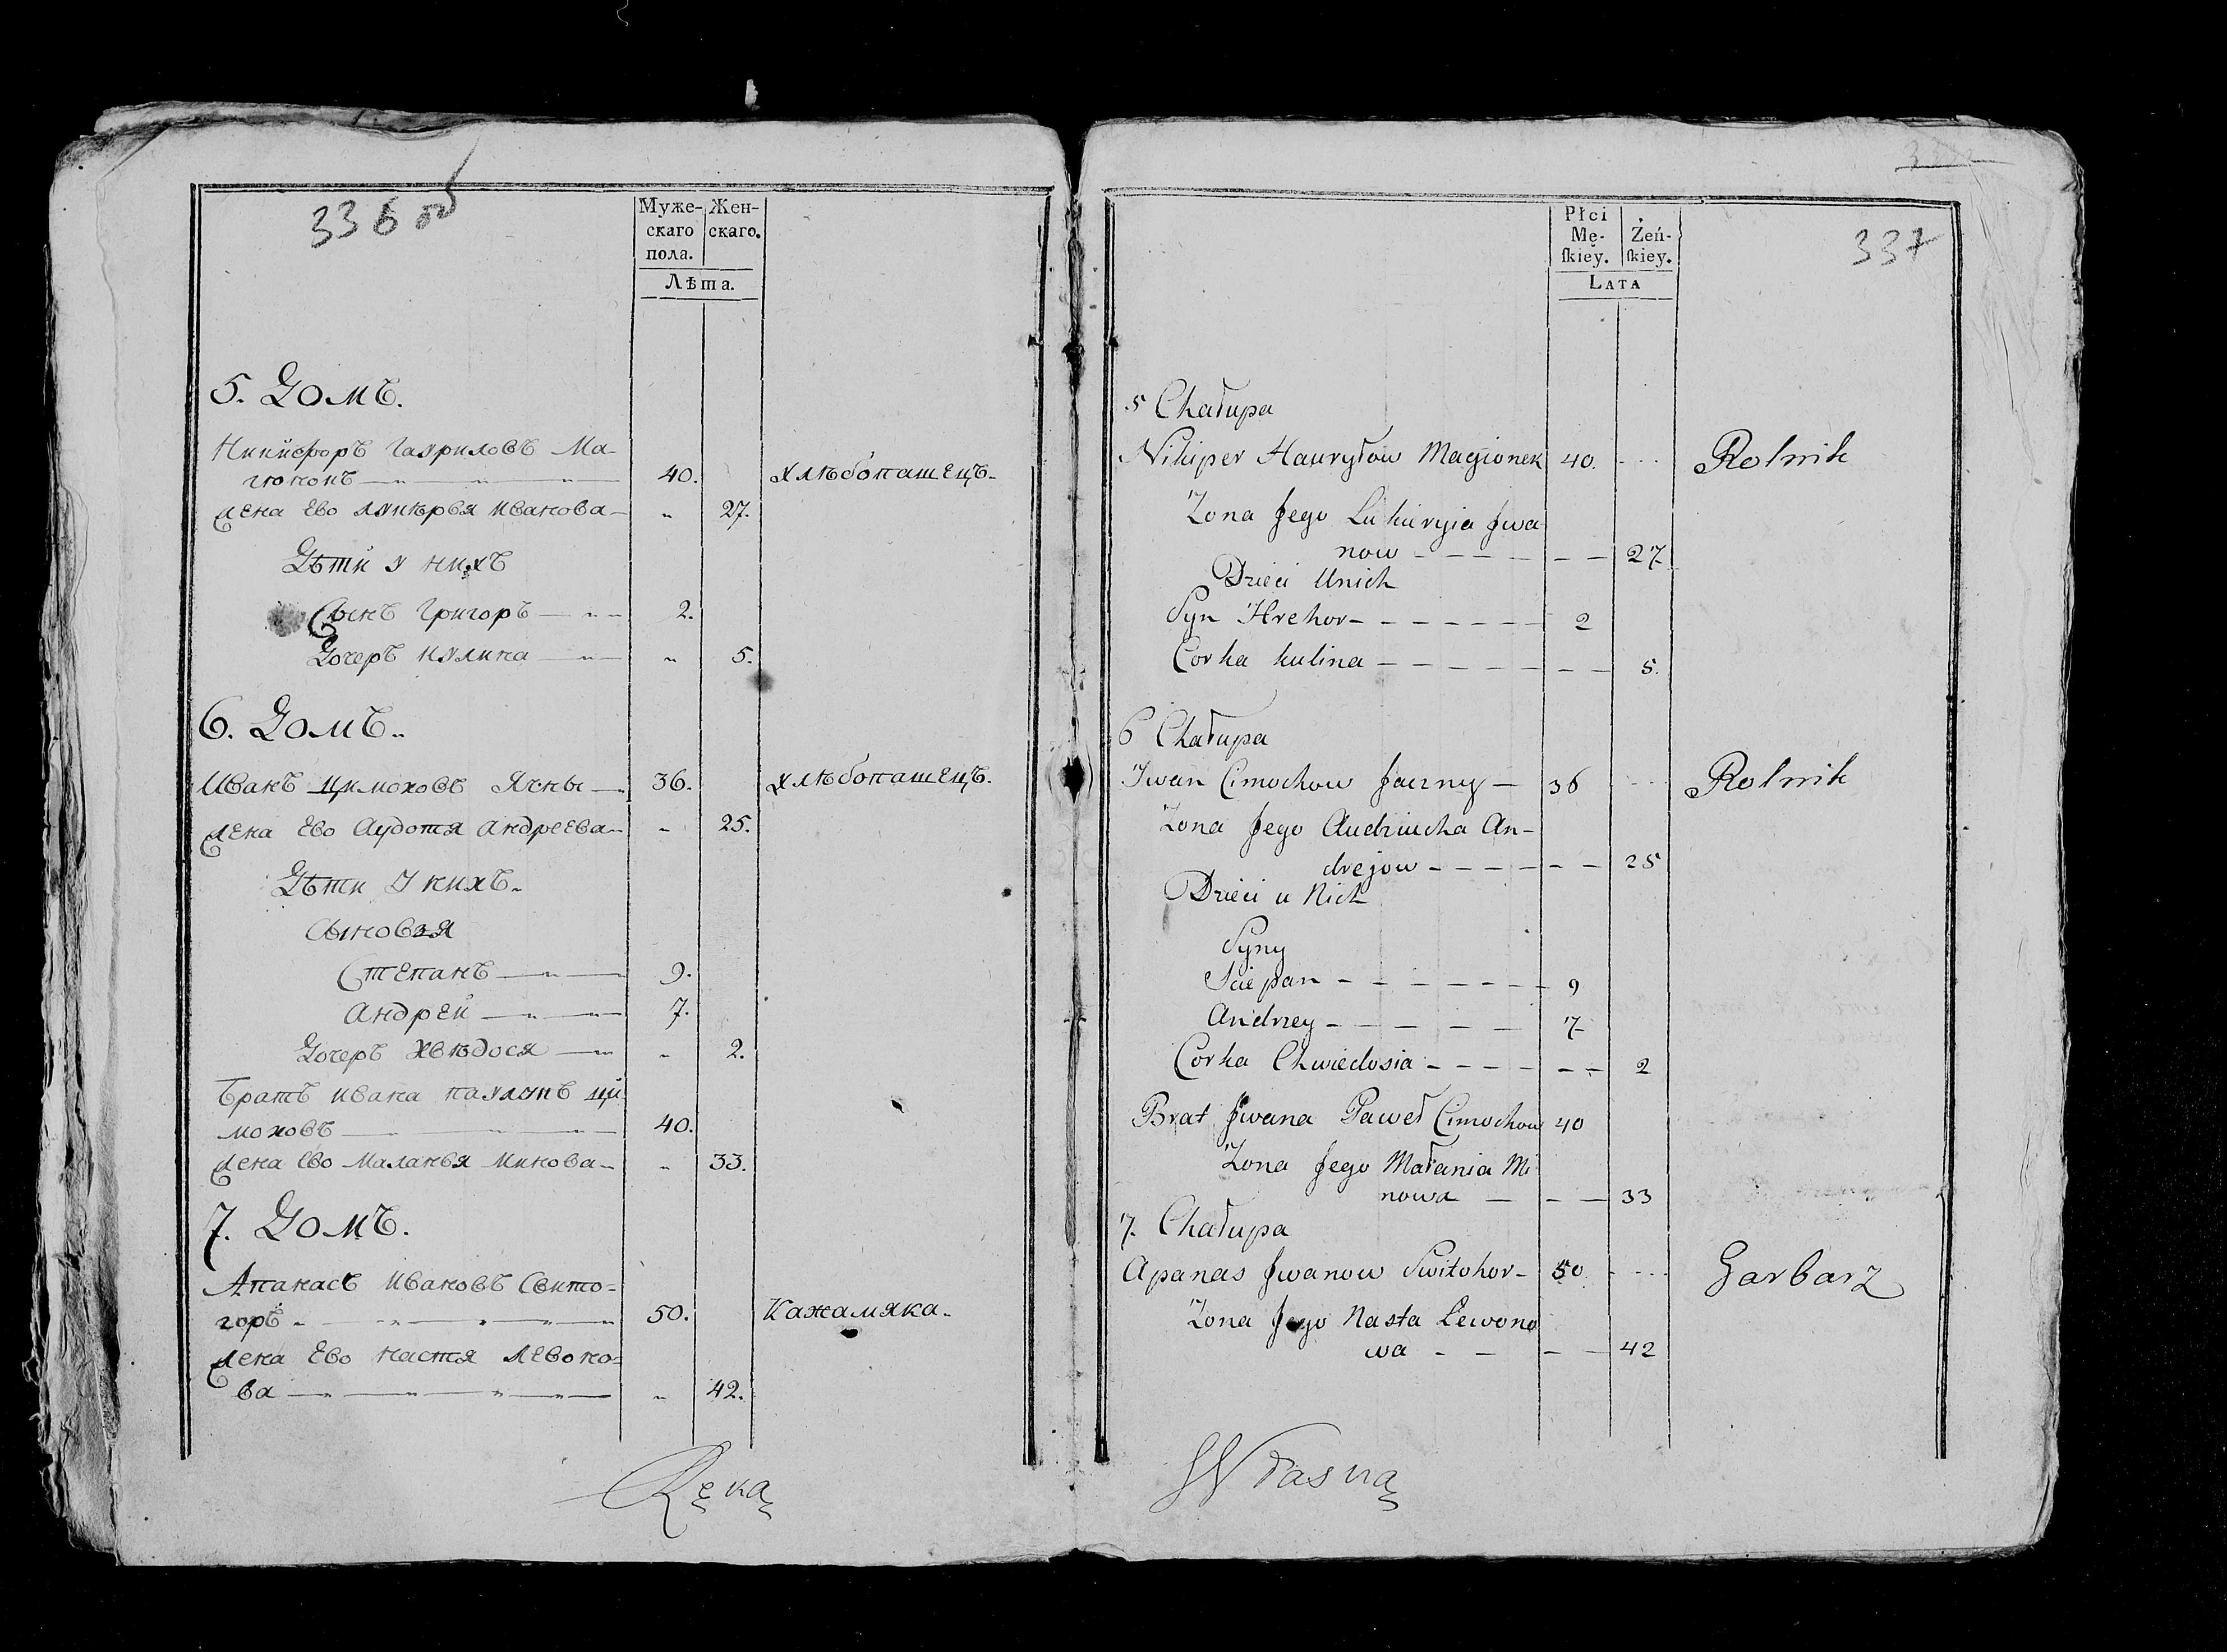 336 об
Муже-
скаго
пола.
Жен-
скаго.
Лѣта.
5. Домъ.
Никифоръ Гауриловъ Ма-
гюнокъ 40. хлѣбопашецъ.
Жена Ево Лукѣрья Иванова 27.
Дѣти у нихъ
Сынъ Григоръ 2.
Дочеръ Кулина 5.
6. Домъ.
Иванъ Цимоховъ Ячны 36. хлѣбопашецъ.
Жена Ево Аудотя Андреева 25.
Дѣти у нихъ.
Сыновья
Степанъ 9.
Андрей 7.
Дочеръ Хвѣдося 2.
Братъ Ивана Паулукъ Ци
моховъ 40.
Жена Ево Маланья Минова 33.
7. Домъ.
Апанасъ Ивановъ Свито-
горъ 50. Кажамяка.
Жена Ево Настя Левоно-
ва 42.
Ręką
337
Płci
Mę-
ſkiey.
Żeń-
ſkiey.
LATA
5 Chałupa
Nikiper Hauryłow Magionek 40. Rolnik
Zona Jego Lukiryia Jwa
now 27
Dzieci Unich
Syn Hrehor 2
Corka kulina 5.
6 Chałupa
Jwan Cimochow Jaczny 36 Rolnik
Zona Jego Audziucha An-
drejow 25
Dzieci u Nich
Syny
Sciepan 9
Andrzey 7
Corka Chwiedosia 2
Brat Jwana Paweł Cimochow 40
Zona Jego Małania Mi
nowa 33
7. Chałupa
Apanas Jwanow Switohor 50 Garbarz
Zona Jego Nasta Lewono
wa 42
Własną